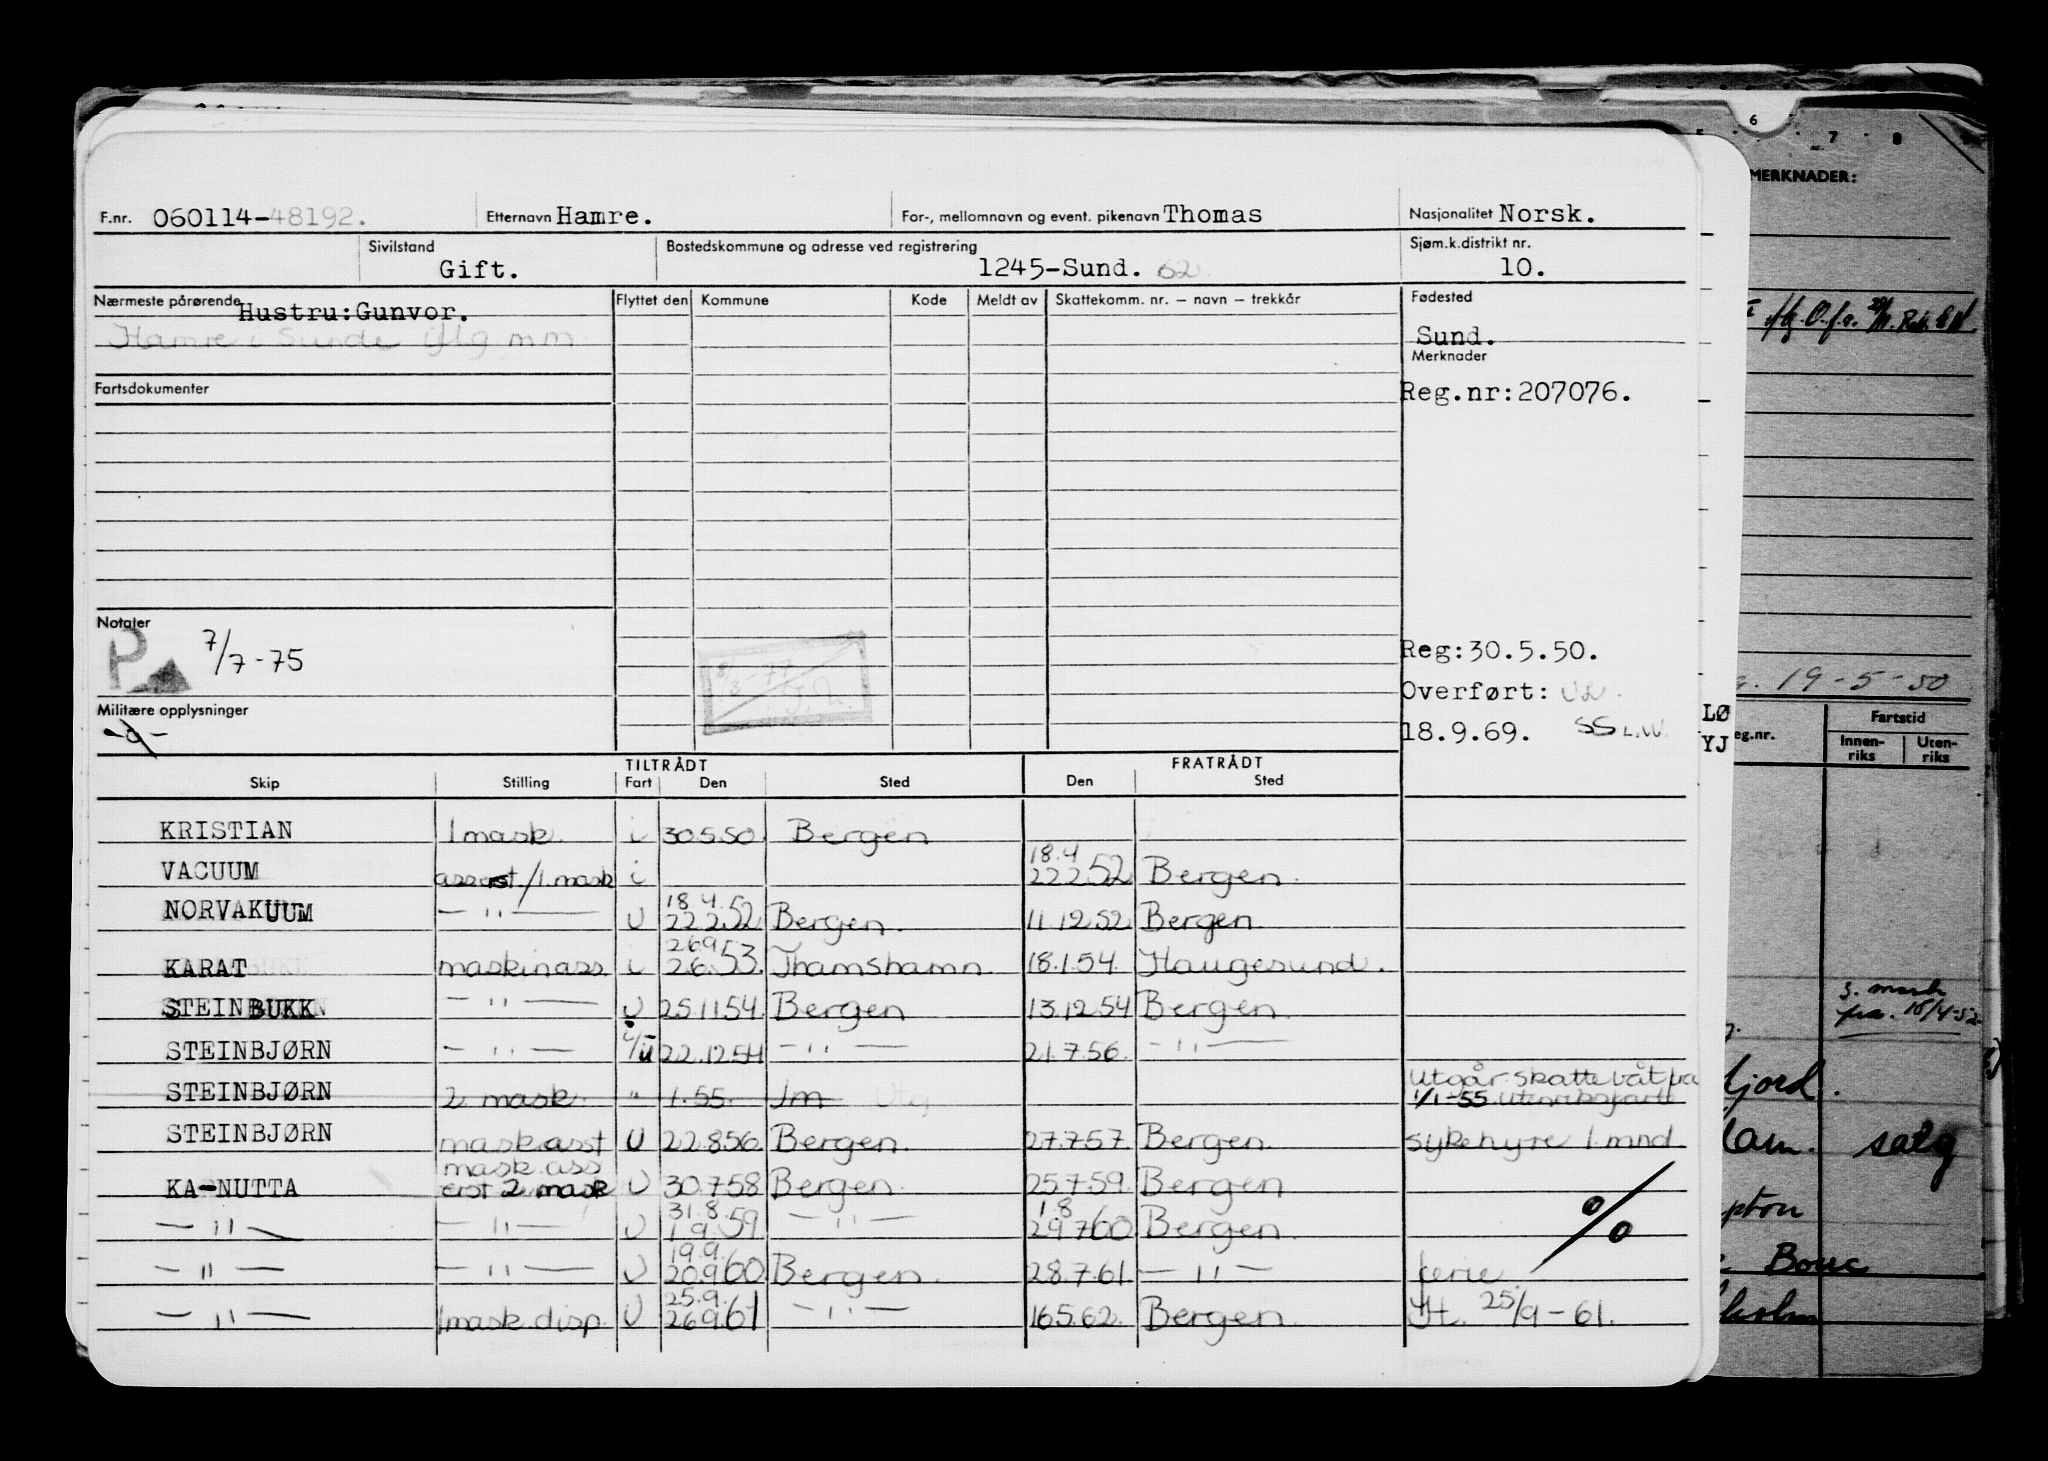 F.nr. 060114-48192. Etternavn Hamre. For-, mellomnavn og event. pikenavn Thomas Nasjonalitet Norsk.
Sivilstand Gift. Bostedskommune og adresse ved registrering 1245-Sund. 62 Sjøm.k.distrikt nr. 10.
Nærmeste pårørende Hustru:Gunvor. Flyttet den Kommune Kode Meldt av Skattekomm. nr. – navn – trekkår Fødested
Hamre i Sunde iflg mm Sund.
Merknader
Fartsdokumenter Reg.nr:207076.
Notater
P 7/7-75
8/3-77
Reg:30.5.50.
Overført:
18.9.69. SS L.W.
Militære opplysninger
TILTRÅDT FRATRÅDT
Skip Stilling Fart Den Sted Den Sted
KRISTIAN 1 mask. i 30.5.50. Bergen
18.4
VACUUM asserst/1.mask i 22.2.52 Bergen.
18.4.52
NORVAKUUM — " — U 22.2.52 Bergen. 11.12.52 Bergen.
26.9
KARAT maskinass. i 26.53. Thamshamn 18.1.54. Haugesund.
STEINBUKK — " — U 25.11.54 Bergen 13.12.54 Bergen.
STEINBJØRN — " — i/U 22.12.54 — " — 21.7.56. — " —
Utgår skattevåt fra
STEINBJØRN 2 mask. " 1.55. Jm 1/1-55 utenriksfarte
STEINBJØRN mask.asst U 22.8.56. Bergen. 27.7.57. Bergen. sykehyre 1.mnd
mask.ass
KA-NUTTA erst 2 mask U 30.7.58 Bergen. 25.7.59. Bergen
31.8. 1.8
— " — — " — U 1.9.59 — " — 29.7.60 Bergen. %
19.9.
— " — — " — U 20.9.60 Bergen. 28.7.61. — " — ferie
25.9.
— " — 1mask.disp. U 26.9.61 — " — 16.5.62. Bergen. Jt. 25/9-61.
LØ
YJ
6
7 8
MERKNADER:
19-5-50
Fartstid
eg.nr. Innen-riks Uten-riks
3. mask
fra. 15/4-52
fjord.
salg
pton
Bouc